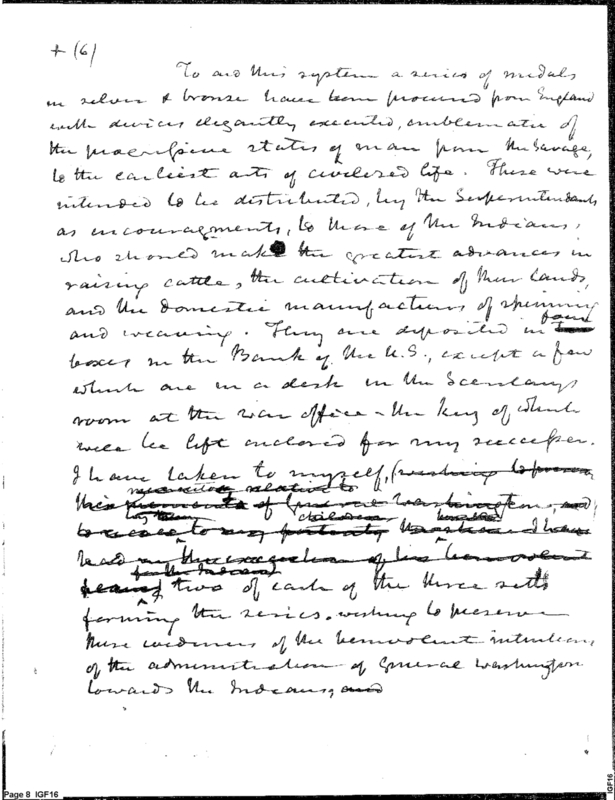 + (6)
To aid this system a series of medals
in silver & bronze have been procured from England
with devices elegantly executed, emblematic of
the progressive states of man from the savage,
to the earliest arts of civilized life. These were
intended to be distributed, by the Superintendants
as encouragements, to those of the Indians,
who should make the greatest advances in
raising cattle, the cultivation of their lands,
and the domestic manufactures of spinning
and weaving. They are deposited in four
boxes in the Bank of the U.S., except a few
which are in a desk in the Secretarys
room at the war office - the key of which
will be left enclosed for my successor.
I have taken to myself, (wishing to preserve
relative to
this of General Washington, and
children
to my posterity I have
had in the execution of his benevolent
for the Indians
plans two of each of the three setts
forming the series. wishing to preserve
these evidences of the benevolent intentions
of the administration of General Washington
towards the Indians, and
Page 8 IGF16
IGF16